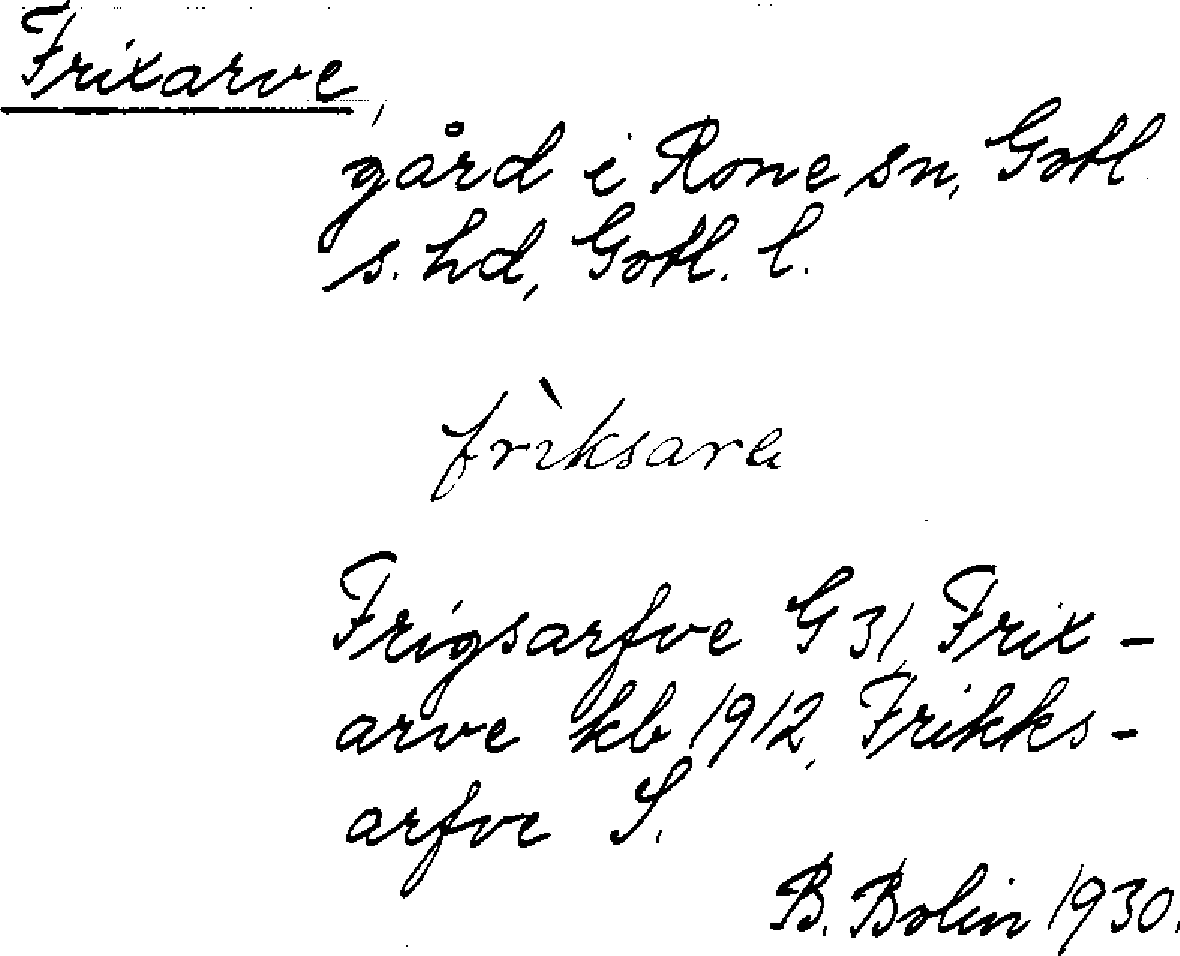 Frixarve,
gård i Rone sn, Gotl
s. hd, Gotl. l.
frìksara
Frigsarfve G 31, Frix-
arve kb 1912, Frikks-
arfve S.
B. Bolin 1930.